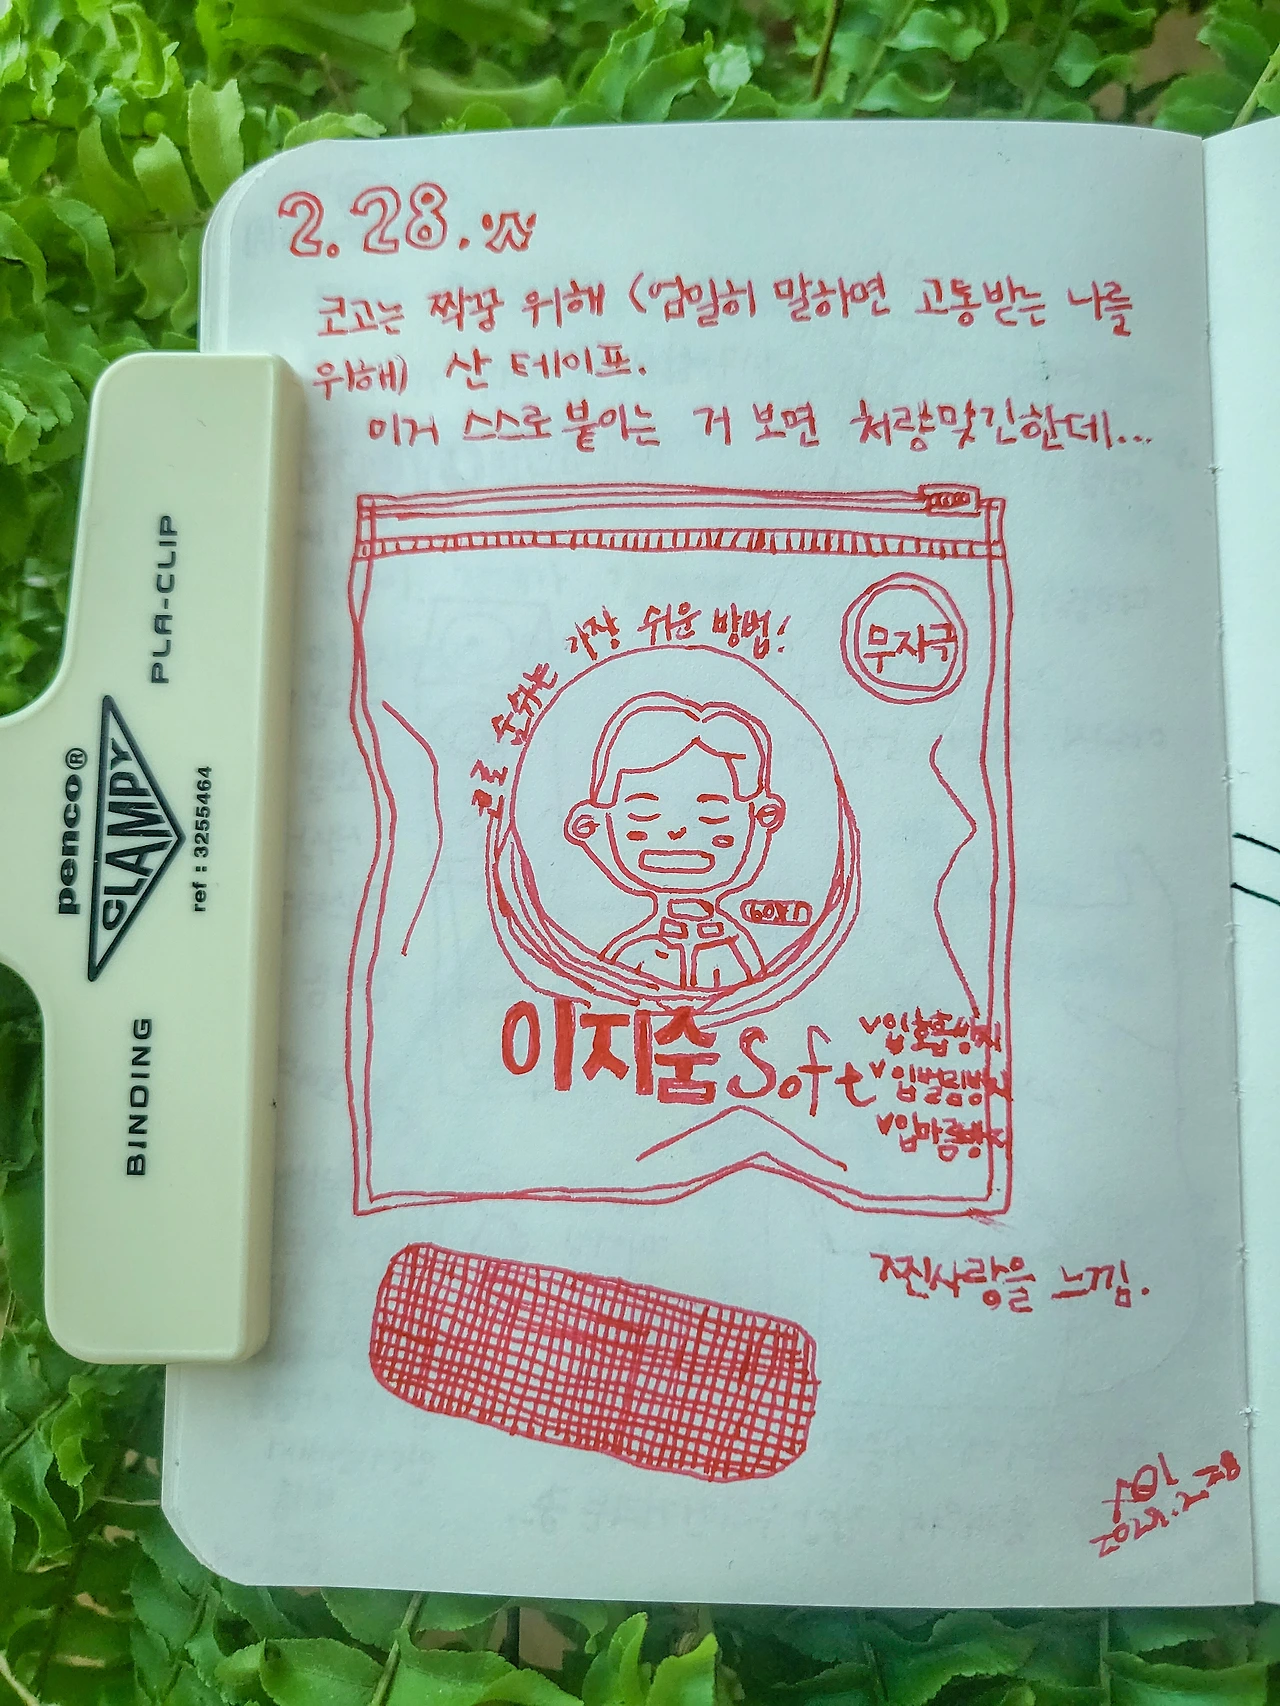 2.28.
코고는 짝꿍 위해 (엄밀히 말하면 고통받는 나를
위해) 산 테이프.
이거 스스로 붙이는 거 보면 처량맞긴한데...
코로 숨쉬는 가장 쉬운 방법!
무자극
이지숨 Soft
v입호흡방지
v입벌림방지
v입마름방지
찐사랑을 느낌.
penco®
CLAMPY
PLA-CLIP
BINDING
ref : 3255464